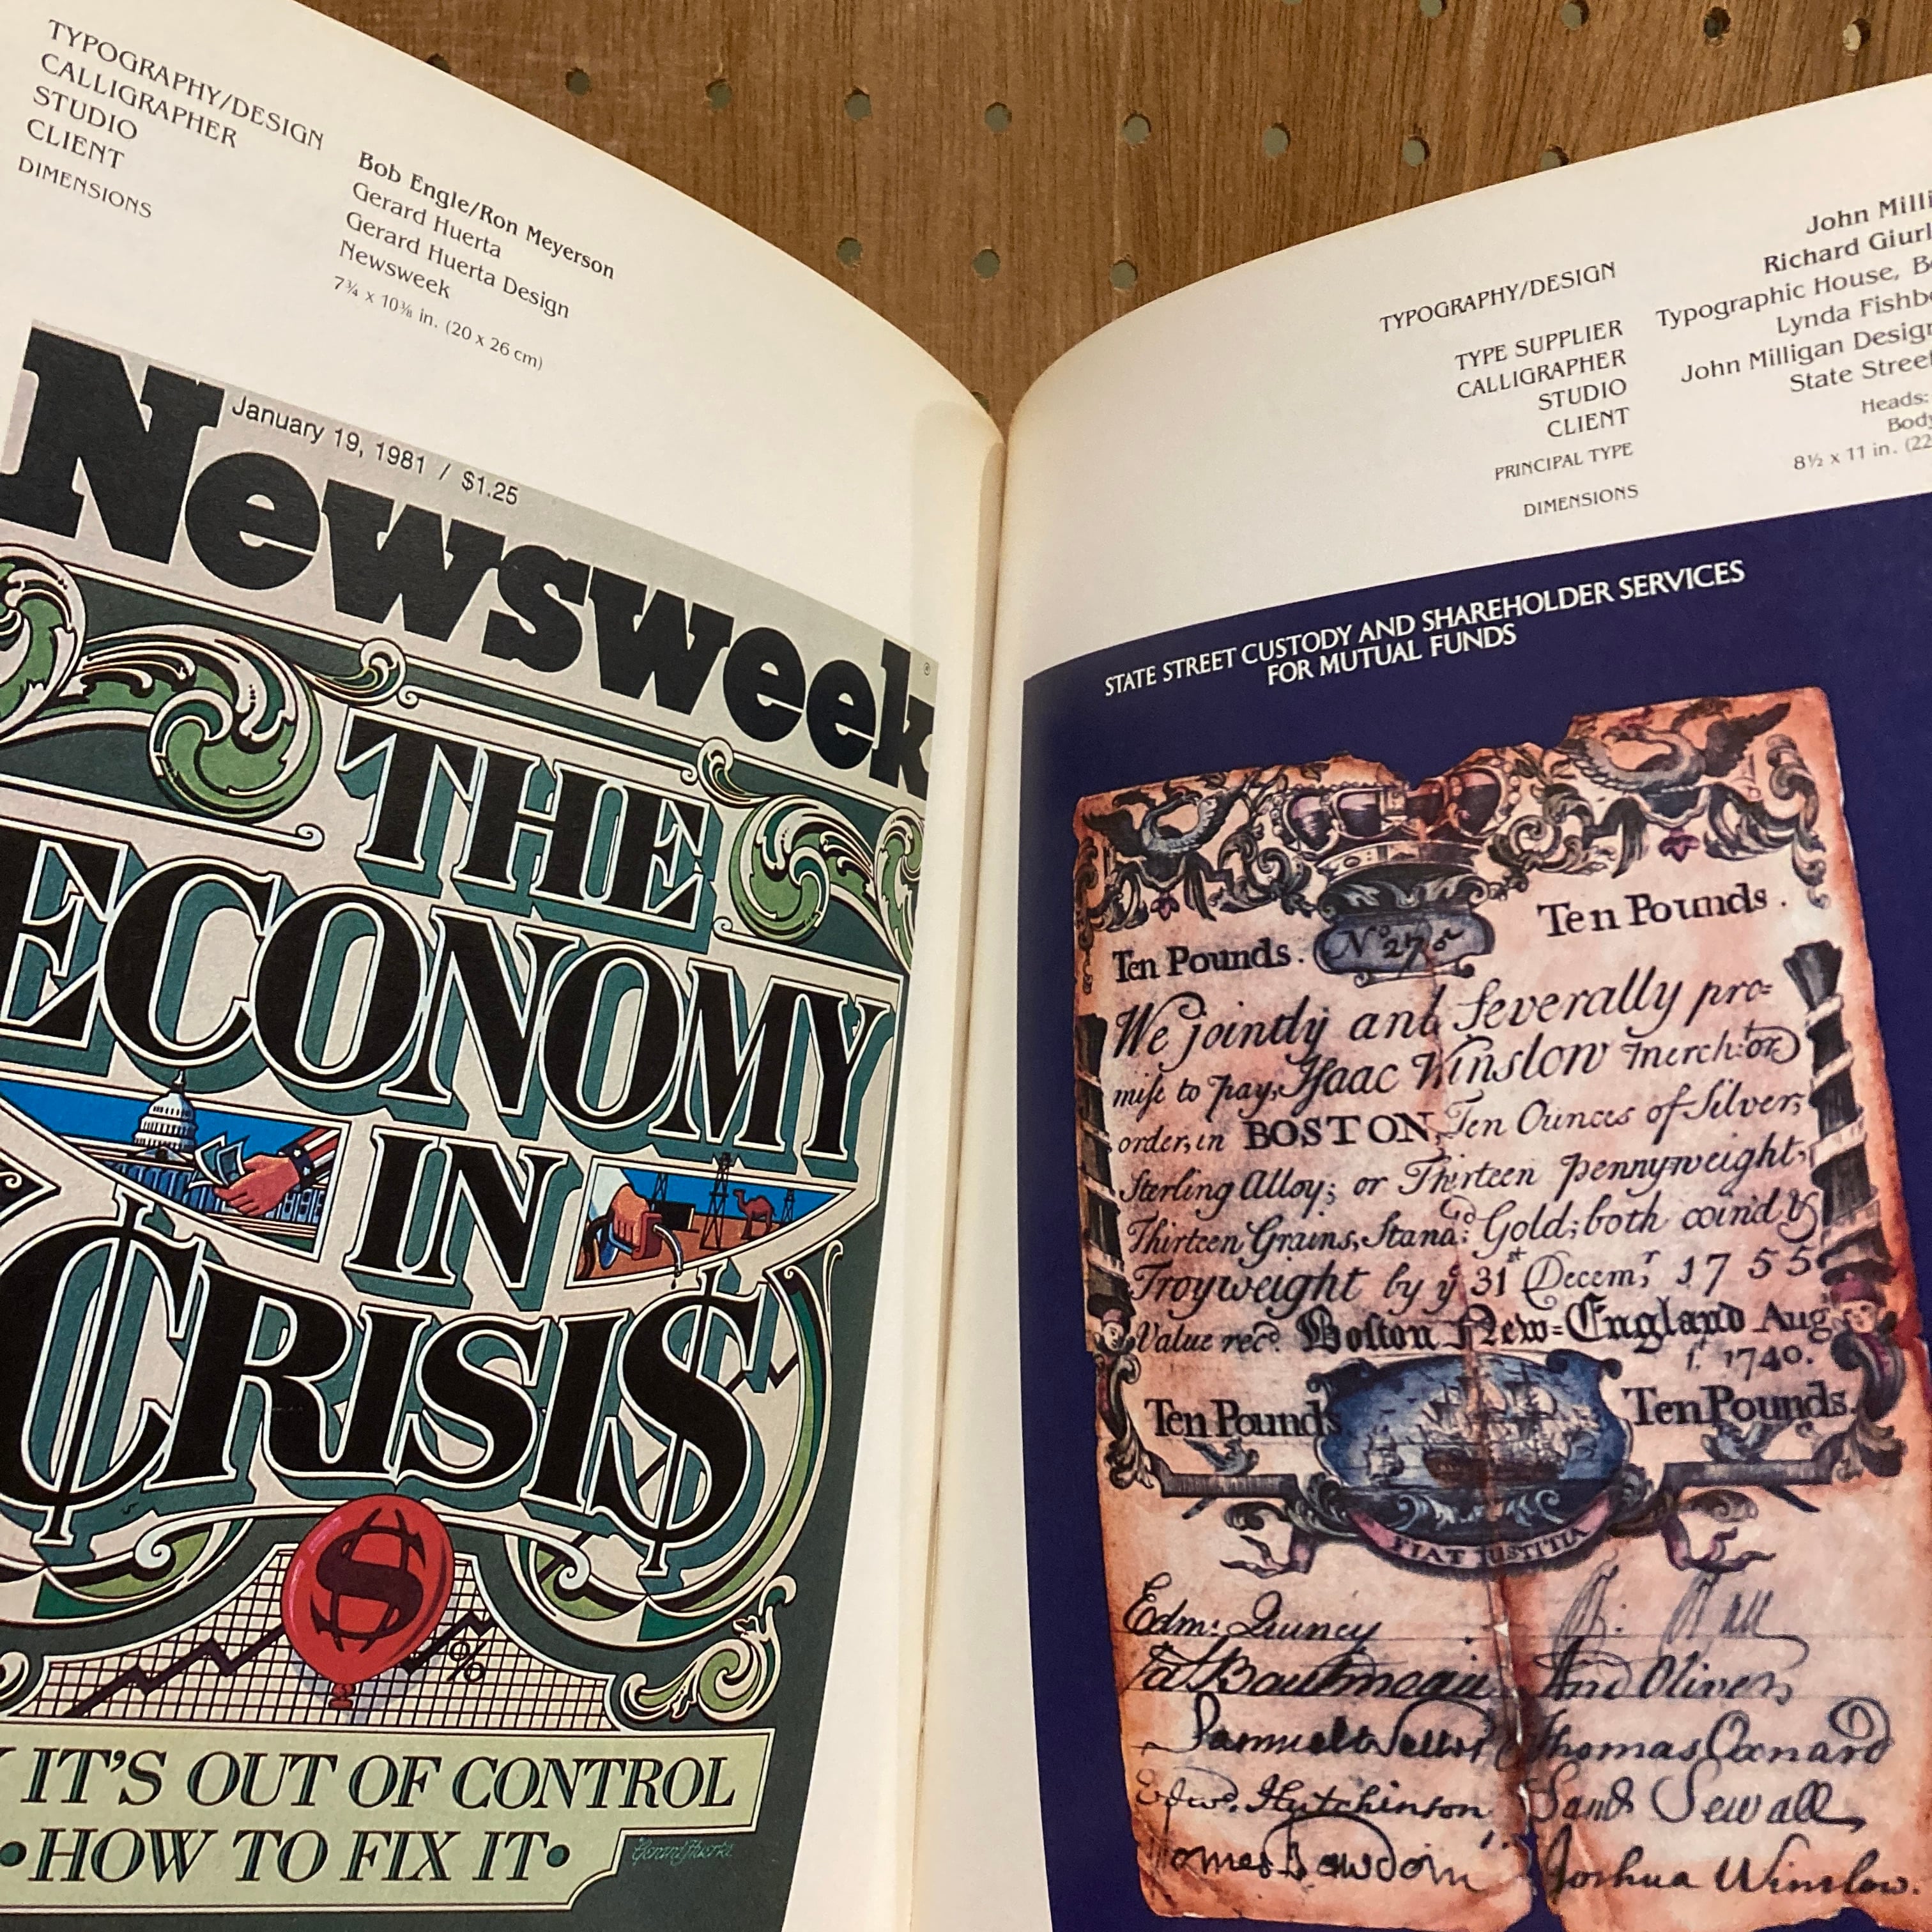 TYPOGRAPHY/DESIGN
CALLIGRAPHER
STUDIO
CLIENT
DIMENSIONS
Bob Engle/Ron Meyerson
Gerard Huerta
Gerard Huerta Design
Newsweek
7¾ x 10⅜ in. (20 x 26 cm)
January 19, 1981 / $1.25
Newsweek
THE
ECONOMY
IN
CRISIS
$
%
IT'S OUT OF CONTROL
•HOW TO FIX IT•
Gerard Huerta
TYPOGRAPHY/DESIGN
TYPE SUPPLIER
CALLIGRAPHER
STUDIO
CLIENT
PRINCIPAL TYPE
DIMENSIONS
John Milli
Richard Giurl
Typographic House, B
Lynda Fishb
John Milligan Design
State Street
Heads:
Body
8½ x 11 in. (22
STATE STREET CUSTODY AND SHAREHOLDER SERVICES
FOR MUTUAL FUNDS
Ten Pounds. No Ten Pounds.
We jointly and severally pro=
mise to pay, Isaac Winslow merch.t or
order, in BOSTON, Ten Ounces of Silver,
Sterling Alloy; or Thirteen pennyweight,
Thirteen Grains, Stand. Gold; both coin'd
Troyweight by ye 31st Decemr. 1755
Value recd. Boston New=England Aug
1. 1740.
Ten Pounds Ten Pounds.
FIAT JUSTITIA
Edm. Quincy
And Oliver
Thomas Oxnard
Edwd. Hutchinson Saml Sewall
James Bowdoin Joshua Winslow.